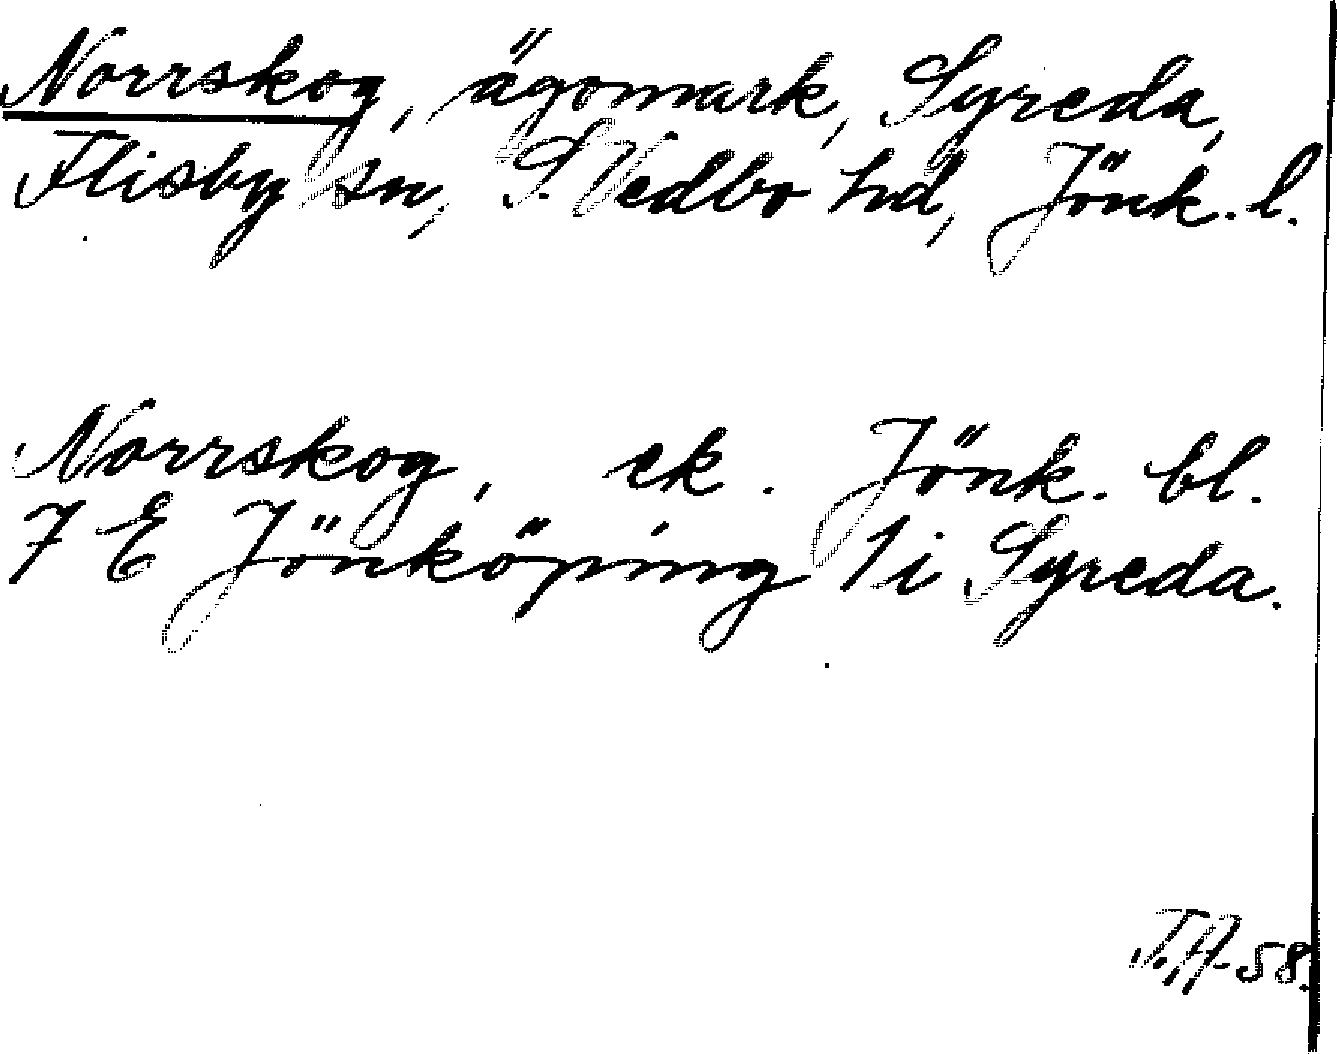 Norrskog, ägomark, Syreda,
Flisby sn, S. Vedbo hd, Jönk. l.
Norrskog, ek. Jönk. bl.
7 E Jönköping 1i Syreda.
T.H-58.